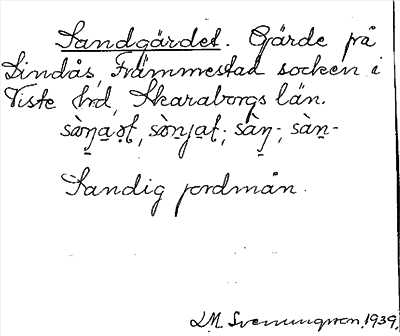 Sandgärdet. Gärde på
Lindås, Främmestad socken i
Viste hd, Skaraborgs län.
Sandig jordmån.
L.M. Svenungsson, 1939.